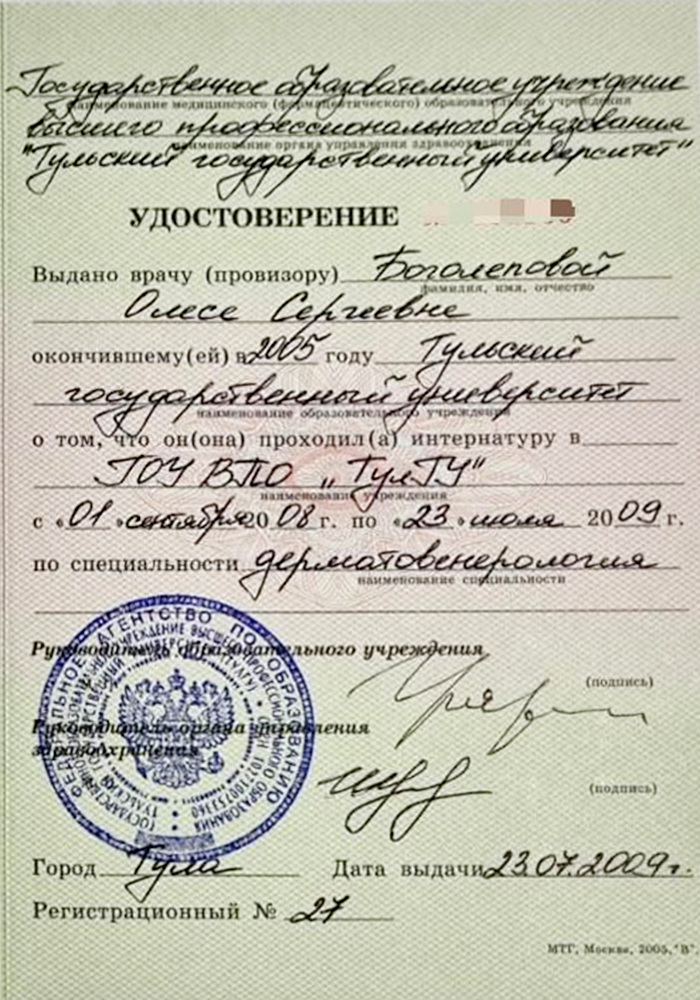 Государственное образовательное учреждение
наименование медицинского (фармацевтического) образовательного учреждения
высшего профессионального образования
наименование органа управления здравоохранения
"Тульский государственный университет"
УДОСТОВЕРЕНИЕ
Выдано врачу (провизору) Боголеповой
фамилия, имя, отчество
Олесе Сергеевне
окончившему(ей) в 2005 году Тульский
государственный университет
наименование образовательного учреждения
о том, что он(она) проходил(а) интернатуру в
ГОУ ВПО „ТулГУ"
наименование учреждения
с «01» сентября 2008 г. по «23» июля 2009 г.
по специальности дерматовенерология
наименование специальности
Руководитель образовательного учреждения
(подпись)
Руководитель органа управления
здравоохранения
(подпись)
ФЕДЕРАЛЬНОЕ АГЕНТСТВО ПО ОБРАЗОВАНИЮ
Город Тула Дата выдачи 23.07.2009г.
Регистрационный № 27
МТГ, Москва, 2005, "В".